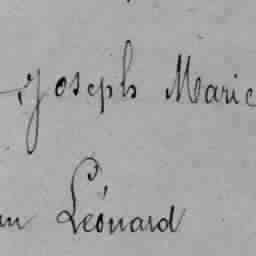 Joseph Marie
Léonard